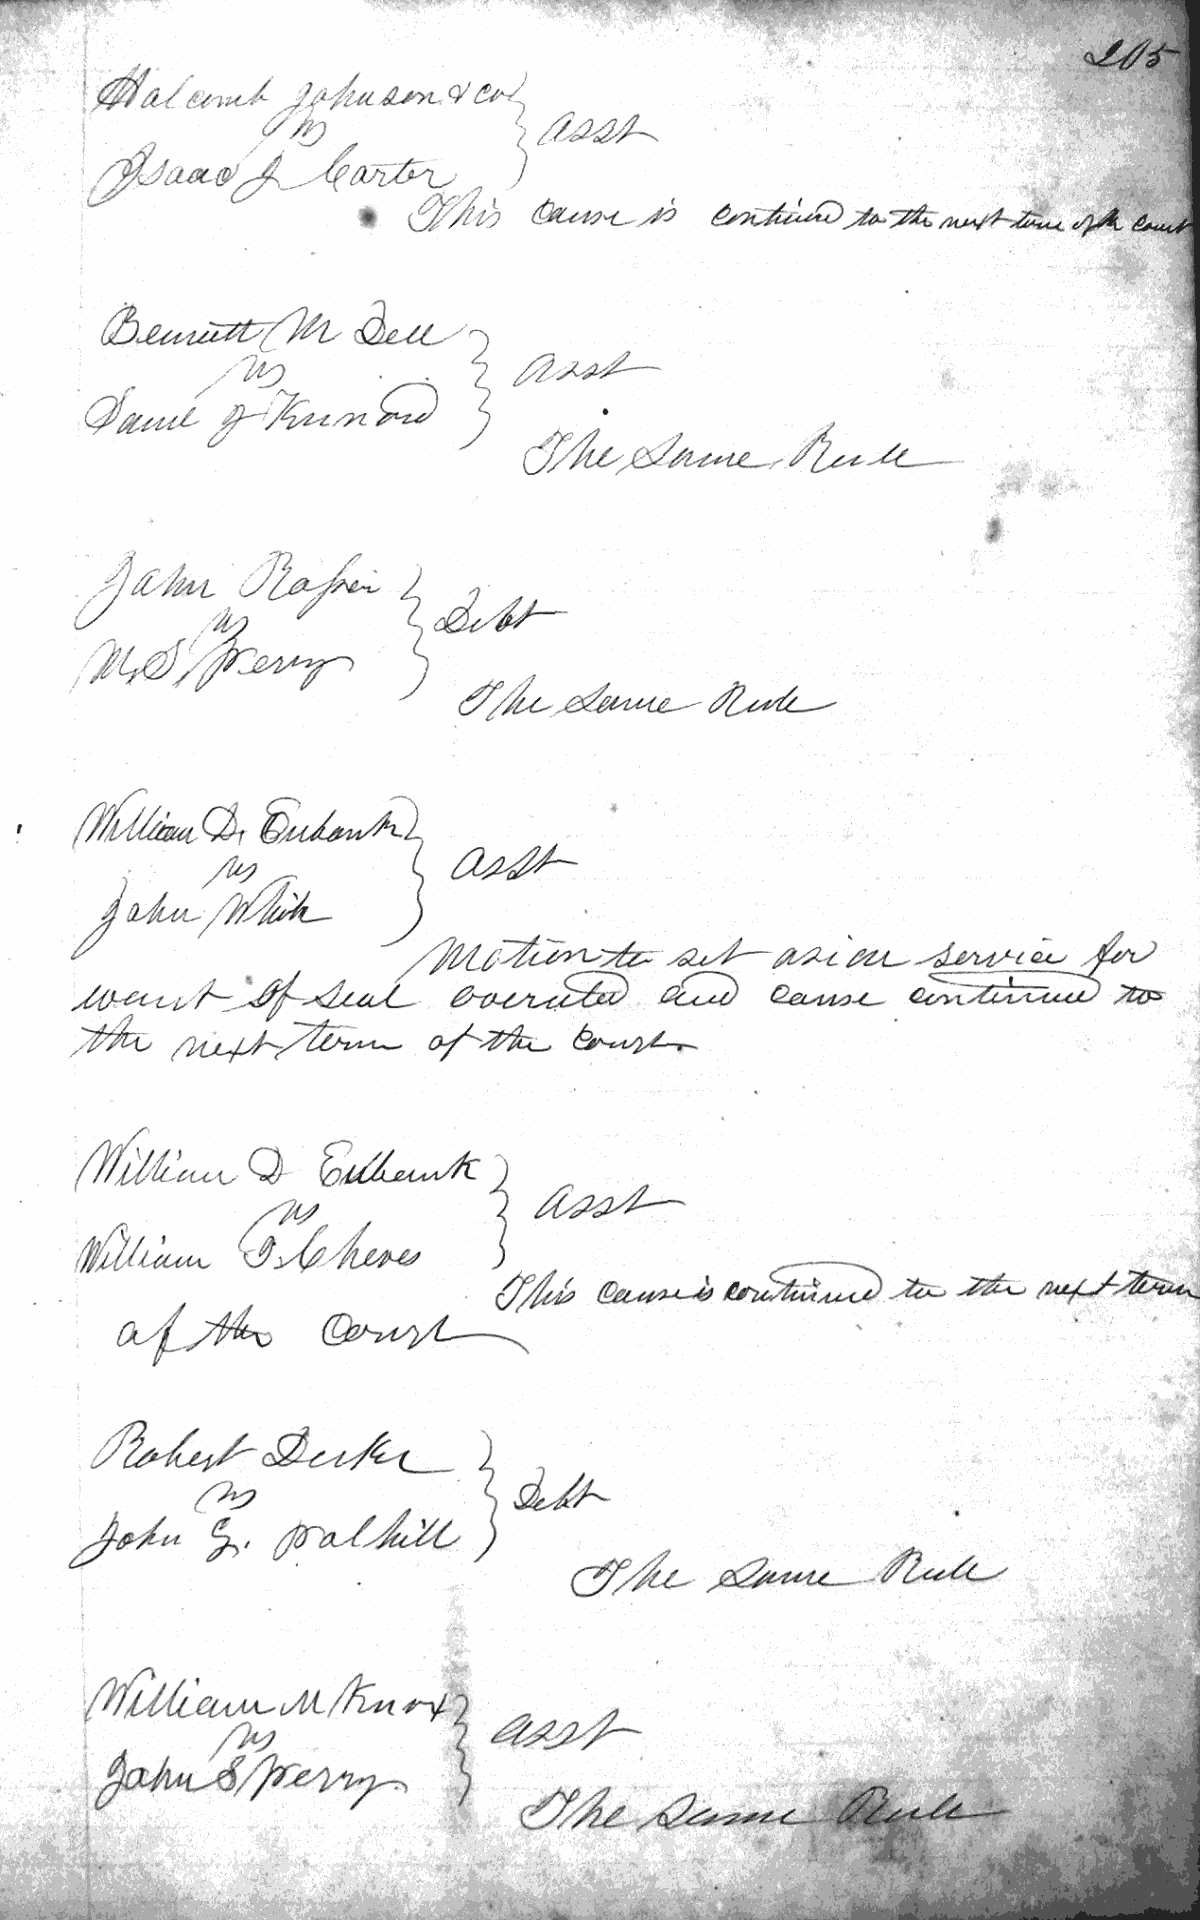 205
Halcomb Johnson & co
vs
Asst
Isaac J Carter
This cause is continued to the next term of the court
Bennett M Dell
vs
Asst
Saml J Kinnard
The Same Rule
John
vs
Debt
M. S. Perry
The Same Rule
William D. Eubank
vs
Asst
John White
Motion to set aside service for
want of seal overuled and cause continued to
the next term of the court.
William D Eubank
vs
Asst
William T. Cheves
This cause is continued to the next term
of the Court
Robert
vs
Debt
John G. Palhill
The Same Rule
William M Knox
vs
Asst
John S Perry
The Same Rule